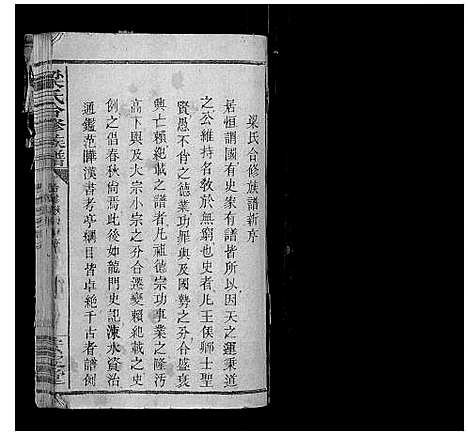 梁氏合修族譜新序
居恒謂國有史家有譜皆所以因天之運秉道
之公維持名敎於無窮也史者凡王侯卿士聖
賢愚不肖之德業功罪與及國勢之分合盛衰
興亡賴紀載之譜者凡祖德宗功事業之隆汚
高下與及大宗小宗之分合遷變賴紀載之史
例之倡春秋尙焉此後如龍門史記涑水資治
通鑑范曄漢書考亭綱目皆卓絶千古者譜例
梁氏合修族譜